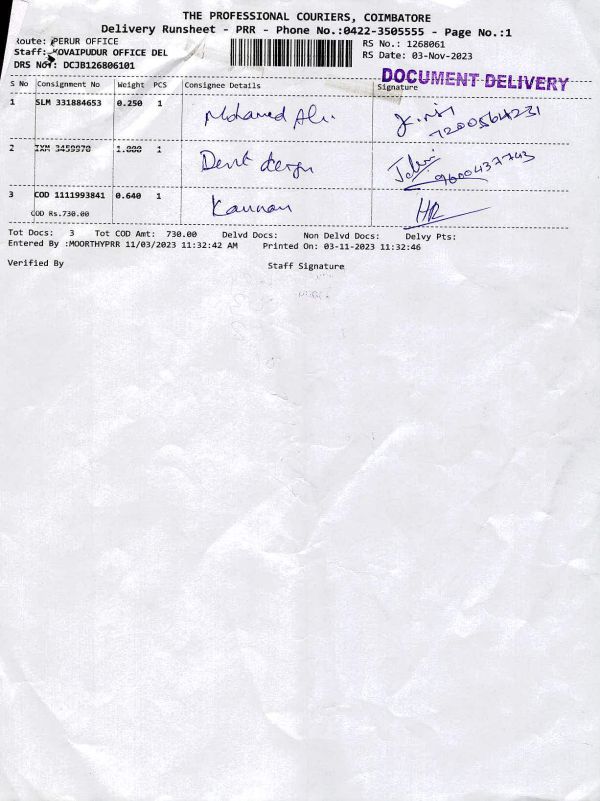 THE PROFESSIONAL COURIERS, COIMBATORE
Delivery Runsheet - PRR - Phone No.:0422-3505555 - Page No.:1
Route: PERUR OFFICE RS No.: 1268061
Staff: KOVAIPUDUR OFFICE DEL RS Date: 03-Nov-2023
DRS No: DCJB126806101
DOCUMENT DELIVERY
S No Consignment No Weight PCS Consignee Details Signature
1 SLM 331884653 0.250 1 Mohamed Ali.
7200564231
2 IXM 3459970 1.000 1
9600437743
3 COD 1111993841 0.640 1 Kannan HR
COD Rs.730.00
Tot Docs: 3 Tot COD Amt: 730.00 Delvd Docs: Non Delvd Docs: Delvy Pts:
Entered By :MOORTHYPRR 11/03/2023 11:32:42 AM Printed On: 03-11-2023 11:32:46
Verified By Staff Signature